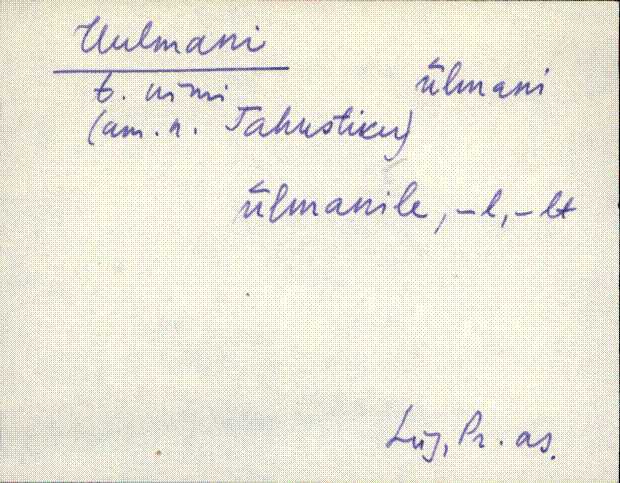 Uulmani
t. nimi
(am. n. Tahustiku)
ūlmani
ūlmanile, -l, -lt
Lüg, Pr. as.